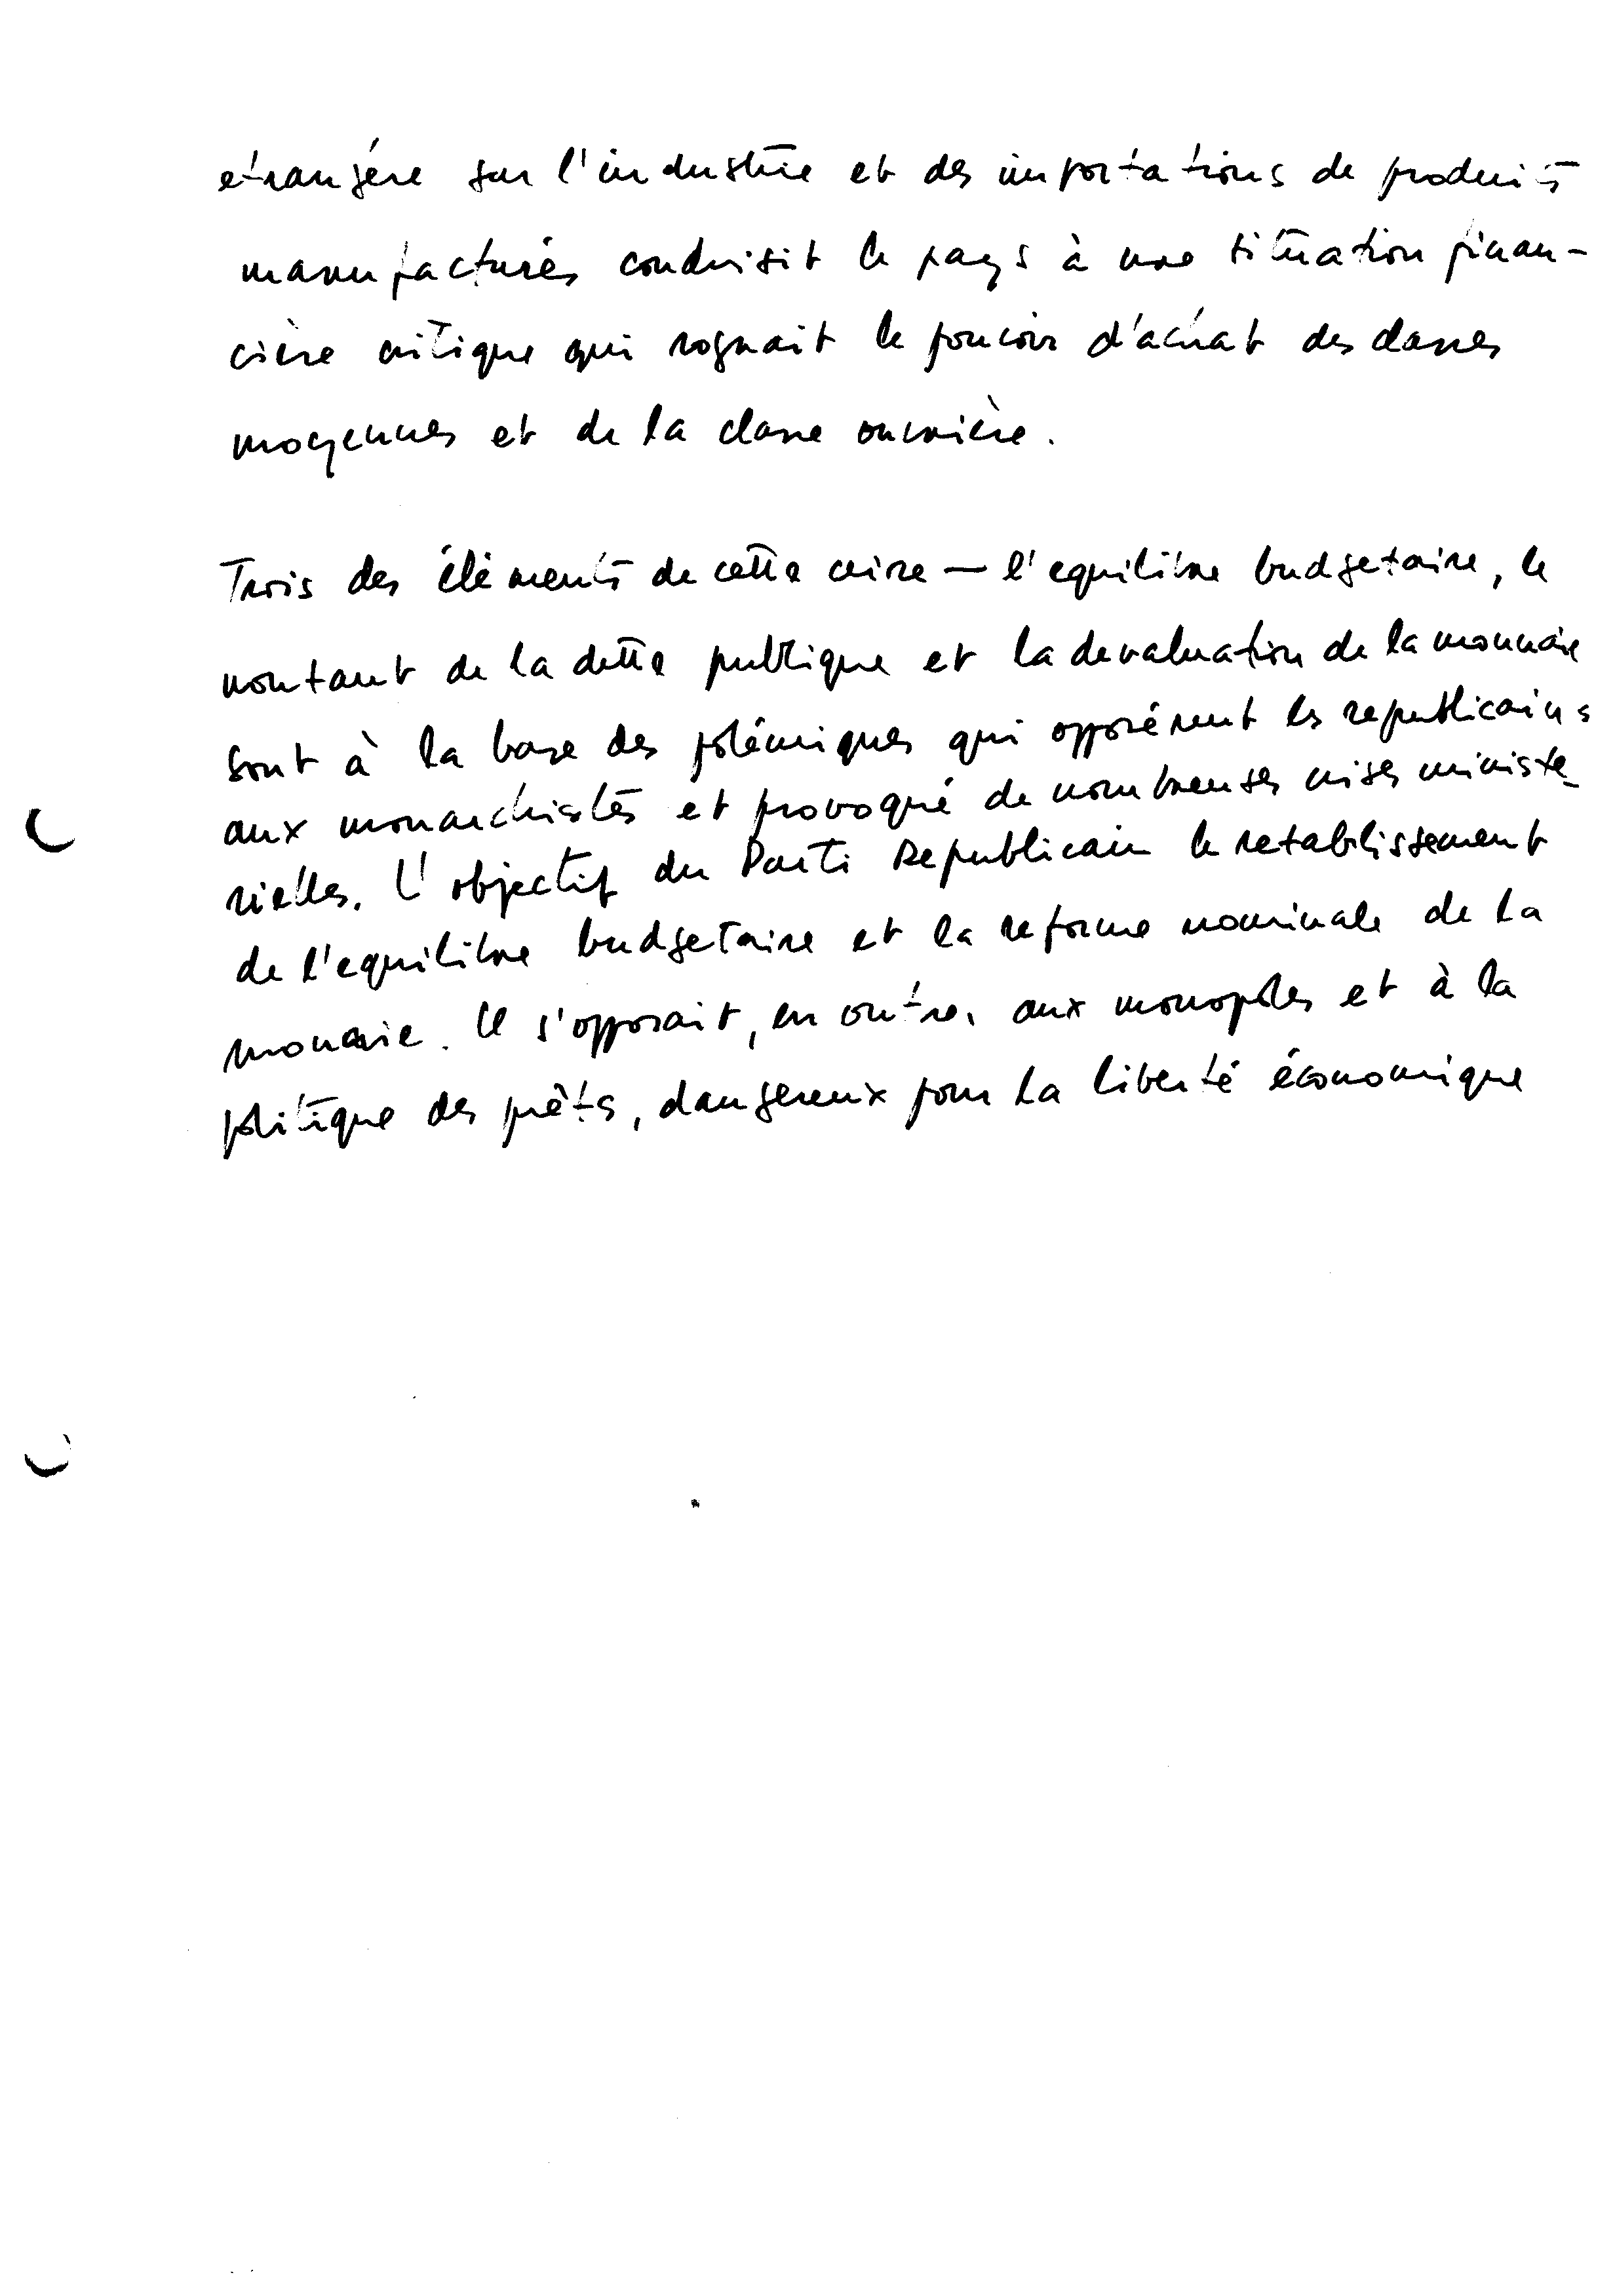 etrangére sur l'industrie et des importations de produits
manufacturés conduisit le pays à une situation finan-
cière critique qui rognait le pouvoir d'achat des classes
moyennes et de la classe ouvrière.
Trois des élèments de cette crise — l'equilibre budgetaire, le
montant de la dette publique et la devaluation de la monnaie
sont à la base des polémiques qui opposérent les republicains
aux monarchistes et provoqué de nombreuses crises ministe-
rielles. L'objectif du Parti Republicain le retablissement
de l'equilibre budgetaire et la reforme nominale de la
monaie. Il s'opposait, en outre, aux monopoles et à la
politique des prêts, dangereux pour la liberté économique